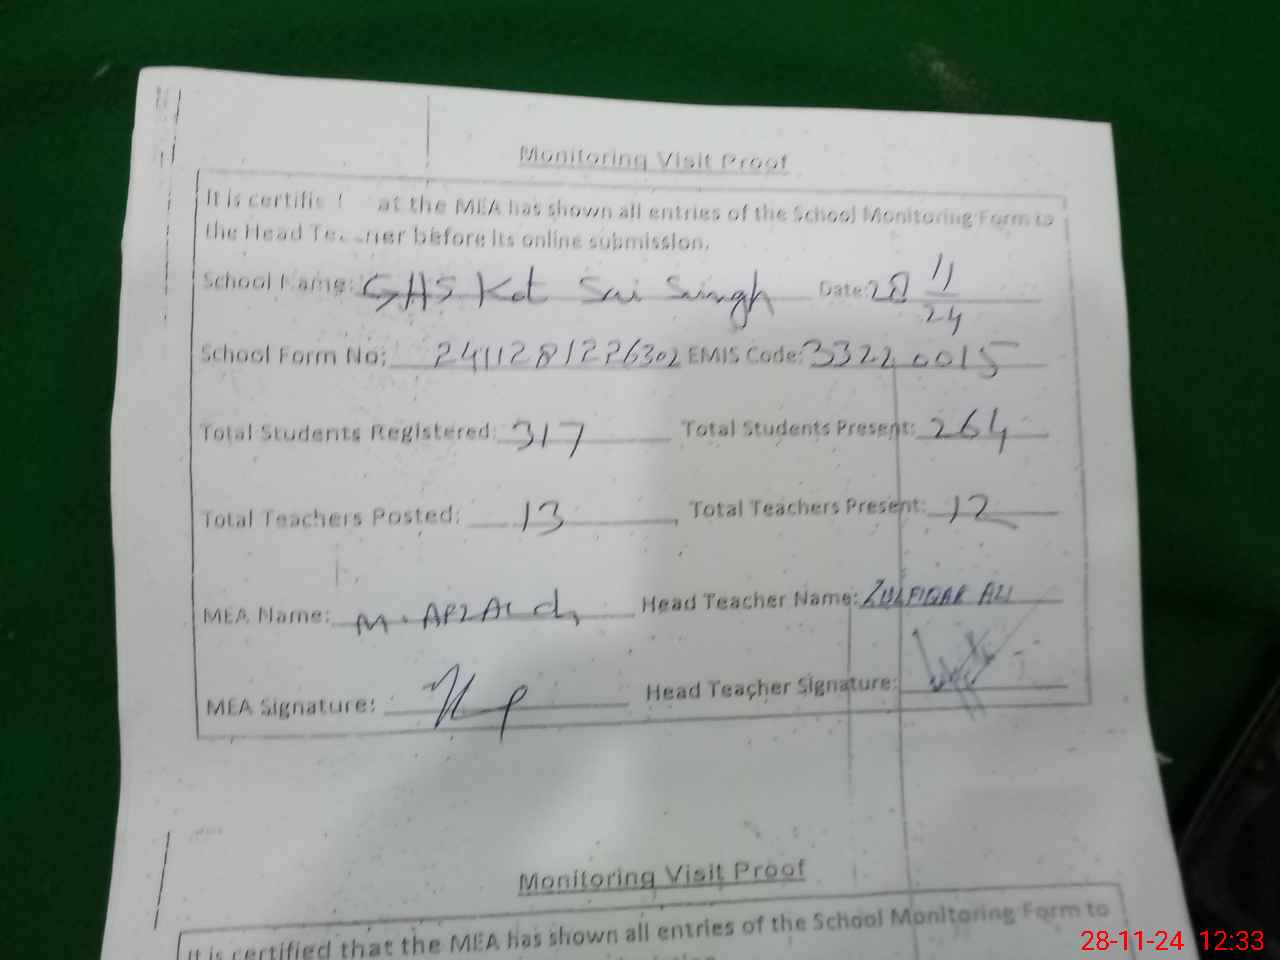 Monitoring Visit Proof
It is certifie at the MEA has shown all entries of the School Monitoring Form to
the Head Teacher before its online submission.
School Name: GHS Kot Sai Singh Date: 28 11/24
School Form No: 2411281226302 EMIS Code: 33220015
Total Students Registered: 317 Total Students Present: 264
Total Teachers Posted: 13 Total Teachers Present: 12
MEA Name: M. Head Teacher Name: ZULFIQAR ALI
MEA Signature: Head Teacher Signature:
Monitoring Visit Proof
It is certified that the MEA has shown all entries of the School Monitoring Form to
28-11-24 12:33